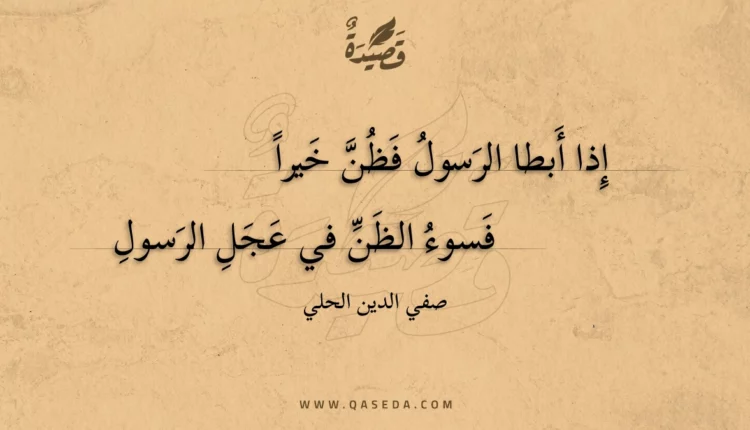 قَصِيدَةٌ
إِذا أَبطا الرَسولُ فَظُنَّ خَيراً
فَسوءُ الظَنِّ في عَجَلِ الرَسولِ
صفي الدين الحلي
WWW.QASEDA.COM